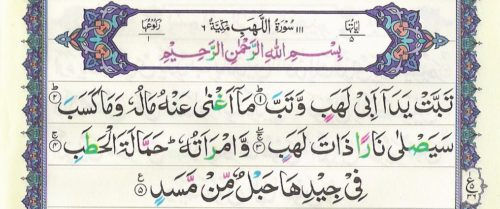 اٰیَاتُهَا ٥
١١١ سُوْرَةُ اللَّهَبِ مَكِّيَّةٌ ٦
رُكُوْعُهَا ١
بِسْمِ اللهِ الرَّحْمٰنِ الرَّحِيْمِ
تَبَّتْ يَدَآ اَبِيْ لَهَبٍ وَّتَبَّ ؕ﴿١﴾ مَاۤ اَغْنٰى عَنْهُ مَالُهٗ وَمَا كَسَبَ ؕ﴿٢﴾
سَيَصْلٰى نَارًا ذَاتَ لَهَبٍ ۚۖ﴿٣﴾ وَّامْرَاَتُهٗ ؕ حَمَّالَةَ الْحَطَبِ ۚ﴿٤﴾
فِيْ جِيْدِهَا حَبْلٌ مِّنْ مَّسَدٍ ﴿٥﴾ ع